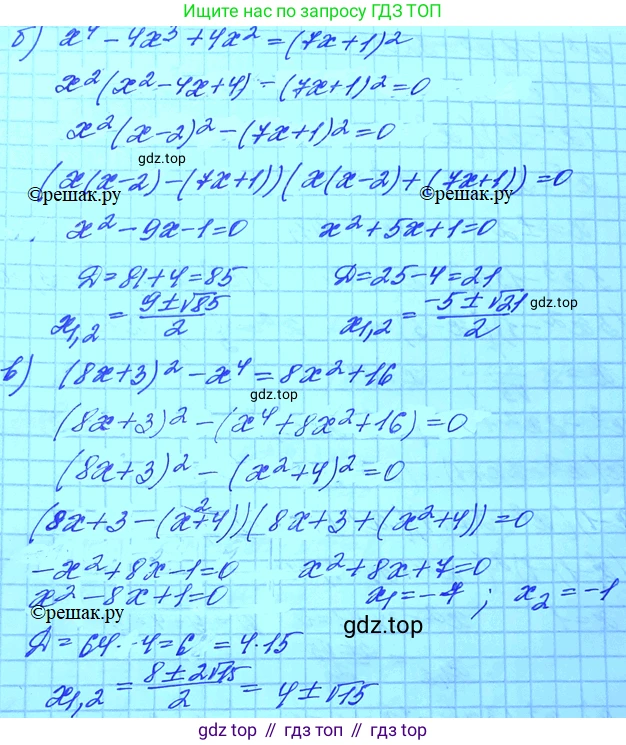 Ищите нужное по запросу ГДЗ ТОП
б) x⁴ - 4x³ + 4x² = (7x+1)²
x²(x² - 4x + 4) - (7x+1)² = 0
x²(x-2)² - (7x+1)² = 0
gdz.top
(x(x-2) - (7x+1))(x(x-2) + (7x+1)) = 0
©решак.ру ©решак.ру
x² - 9x - 1 = 0 x² + 5x + 1 = 0
Д = 81 + 4 = 85 Д = 25 - 4 = 21
x₁,₂ = (9 ± √85)/2 x₁,₂ = (-5 ± √21)/2
gdz.top
в) (8x+3)² - x⁴ = 8x² + 16
gdz.top
(8x+3)² - (x⁴ + 8x² + 16) = 0
(8x+3)² - (x² + 4)² = 0
(8x+3 - (x²+4))(8x+3 + (x²+4)) = 0
-x² + 8x - 1 = 0 x² + 8x + 7 = 0
x² - 8x + 1 = 0 x₁ = -7; x₂ = -1
©решак.ру
gdz.top
Д = 64 - 4 = 6 = 4·15
x₁,₂ = (8 ± 2√15)/2 = 4 ± √15
gdz top // гдз топ // гдз.топ